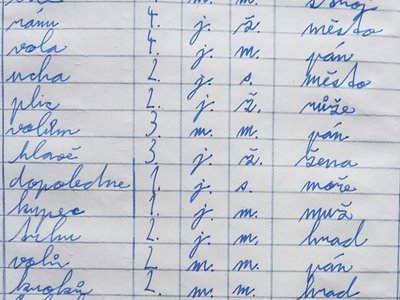 ránu 4. j. ž. město
vola 4. j. m. pán
ucha 2. j. s. město
plic 2. j. ž. růže
volům 3. m. m. pán
hlavě 3. j. ž. žena
dopoledne 1. j. s. moře
kupec 1. j. m. muž
břhu 2. j. m. hrad
volů 2. m. m. pán
kroků 2. m. m. hrad